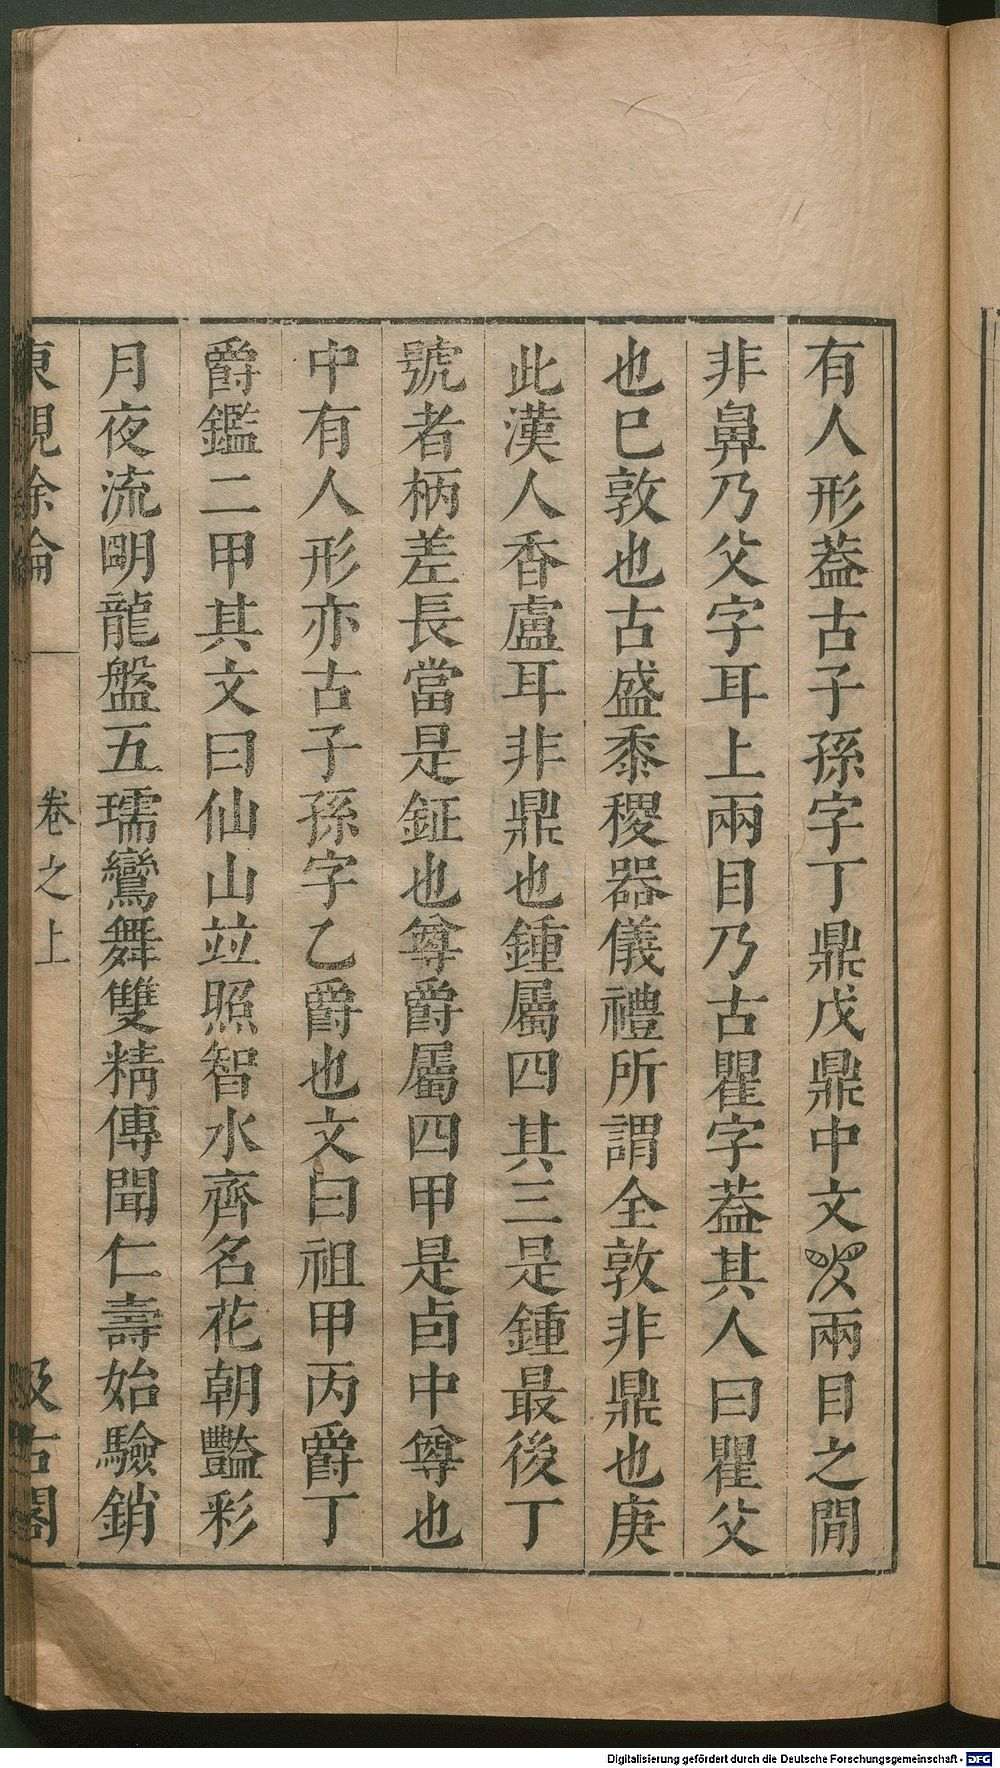 有人形葢古子孫字丁鼎戊鼎中文兩目之閒
非鼻乃父字耳上兩目乃古瞿字葢其人曰瞿父
也巳敦也古盛黍稷器儀禮所謂全敦非鼎也庚
此漢人香盧耳非鼎也鍾屬四其三是鍾最後丁
號者柄差長當是鉦也尊爵屬四甲是卣中尊也
中有人形亦古子孫字乙爵也文曰祖甲丙爵丁
爵鑑二甲其文曰仙山竝照智水齊名花朝豔彩
月夜流朙龍盤五瑞鸞舞雙精傳聞仁壽始驗銷
東觀餘論
卷之上
汲古閣
Digitalisierung gefördert durch die Deutsche Forschungsgemeinschaft - DFG